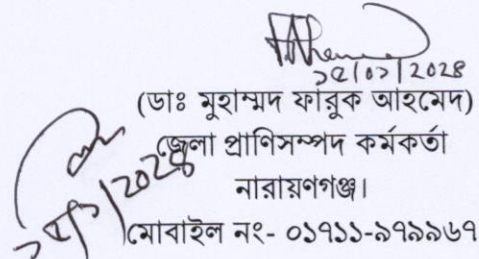 ১৫/০১/২০২৪
(ডাঃ মুহাম্মদ ফারুক আহমেদ)
জেলা প্রাণিসম্পদ কর্মকর্তা
নারায়ণগঞ্জ।
মোবাইল নং- ০১৭১১-৯৭৯৯৬৭